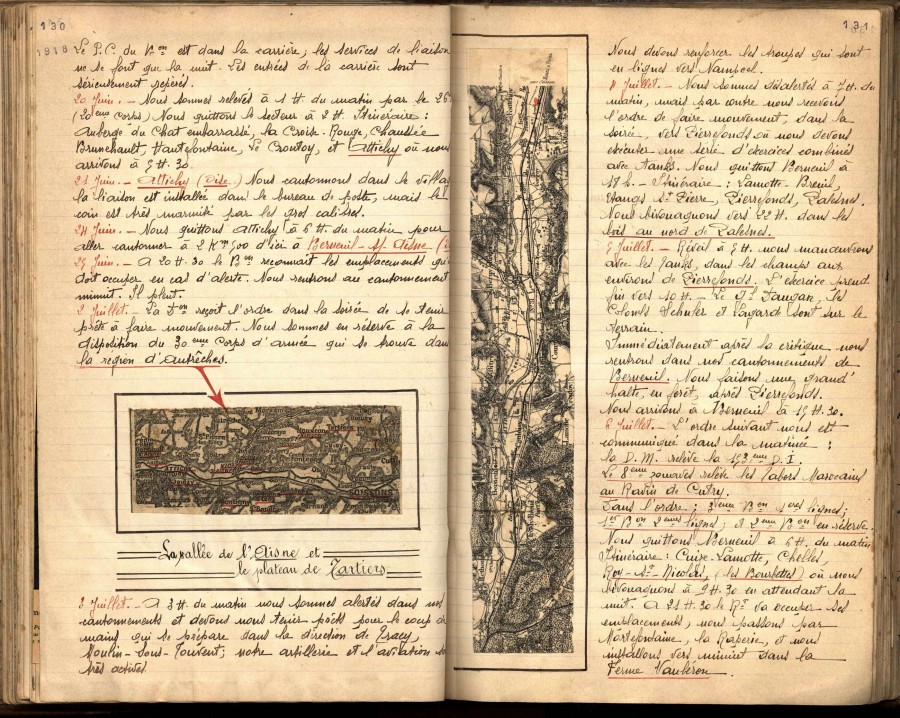 130
1918
Le P.C. du Bon est dans la carrière; les services de liaison
ne se font que la nuit. Les entrées de la carrière sont
sérieusement repérées.
20 Juin. _ Nous sommes relevés à 1 H. du matin par le 26e
(20ème Corps) Nous quittons le secteur à 2 H. Itinéraire:
Auberge du Chat embarrassé, la Croix-Rouge, Chaussée
Brunehault, Hautefontaine, Le Croutoy, et Attichy où nous
arrivons à 5 H. 30.
21 Juin. _ Attichy (Oise.) Nous cantonnons dans le village
la liaison est installée dans le bureau de poste, mais le
coin est très marmité par les gros calibres.
24 Juin. _ Nous quittons Attichy à 6 H. du matin pour
aller cantonner à 2 Km 500 d'ici à Berneuil-s/-Aisne
25 Juin. _ A 20 H. 30 le Bon reconnaît les emplacements qu'il
doit occuper en cas d'alerte. Nous rentrons au cantonnement
minuit. Il pleut.
2 Juillet. _ La Don reçoit l'ordre dans la soirée de se tenir
prête à faire mouvement. Nous sommes en réserve à la
disposition du 30ème Corps d'armée qui se trouve dans
la région d'Autrêches.
La vallée de l'Aisne et
le plateau de Tartiers
3 Juillet. _ A 3 H. du matin nous sommes alertés dans nos
cantonnements et devons nous tenir prêts pour le coup de
mains qui se prépare dans la direction de Tracy,
Moulin-Sous-Touvent; notre artillerie et l'aviation
très actives.
131
Nous devons renforcer les troupes qui sont
en lignes vers Nampcel.
4 Juillet. _ Nous sommes désalertés à 7 H. du
matin, mais par contre nous recevons
l'ordre de faire mouvement, dans la
soirée, vers Pierrefonds où nous devons
exécuter une série d'exercices combinés
avec tanks. Nous quittons Berneuil à
18 h. _ Itinéraire: Lamotte-Breuil,
Etangs St Pierre, Pierrefonds, Palesne.
Nous bivouaquons vers 22 H. dans les
bois au nord de Palesne.
5 Juillet. _ Réveil à 5 H. nous manœuvrons
avec les Tanks, dans les champs aux
environs de Pierrefonds. L'exercice prend
fin vers 10 H. _ Le Gl Daugan, les
Colonels Schuler et Lagarde sont sur le
terrain.
Immédiatement après la critique nous
rentrons dans nos cantonnements de
Berneuil. Nous faisons une grand'
halte, en forêt, après Pierrefonds.
Nous arrivons à Berneuil à 15 H. 30.
6 Juillet. _ L'ordre suivant nous est
communiqué dans la matinée:
la D. M. relève la 153ème D. I.
Le 8ème zouaves relève les tabors Marocains
au Ravin de Cutry.
Dans l'ordre: 3ème Bon 1ères lignes;
1er Bon 2èmes lignes; et 2ème Bon en réserve.
Nous quittons Berneuil à 6 H. du matin
Itinéraire: Cuise-Lamotte, Chelles,
Roy-St-Nicolas, (les Bourbettes) où nous
bivouaquons à 9 H. 30 en attendant la
nuit. A 21 H. 30 le Rt va occuper ses
emplacements, nous passons par
Mortefontaine, la Raperie, et nous
installons vers minuit dans la
Ferme Vaubéron.